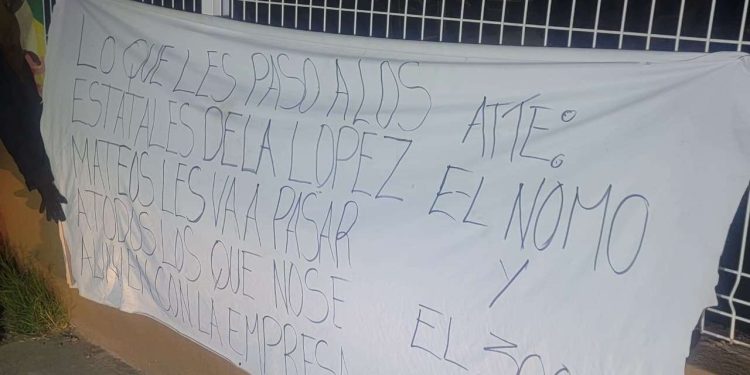 LO QUE LES PASO A LOS
ESTATALES DE LA LOPEZ
MATEOS LES VA A PASAR
A TODOS LOS QUE NO SE
ALINEN CON LA EMPRESA
ATTE:
EL NOMO
Y
EL 300